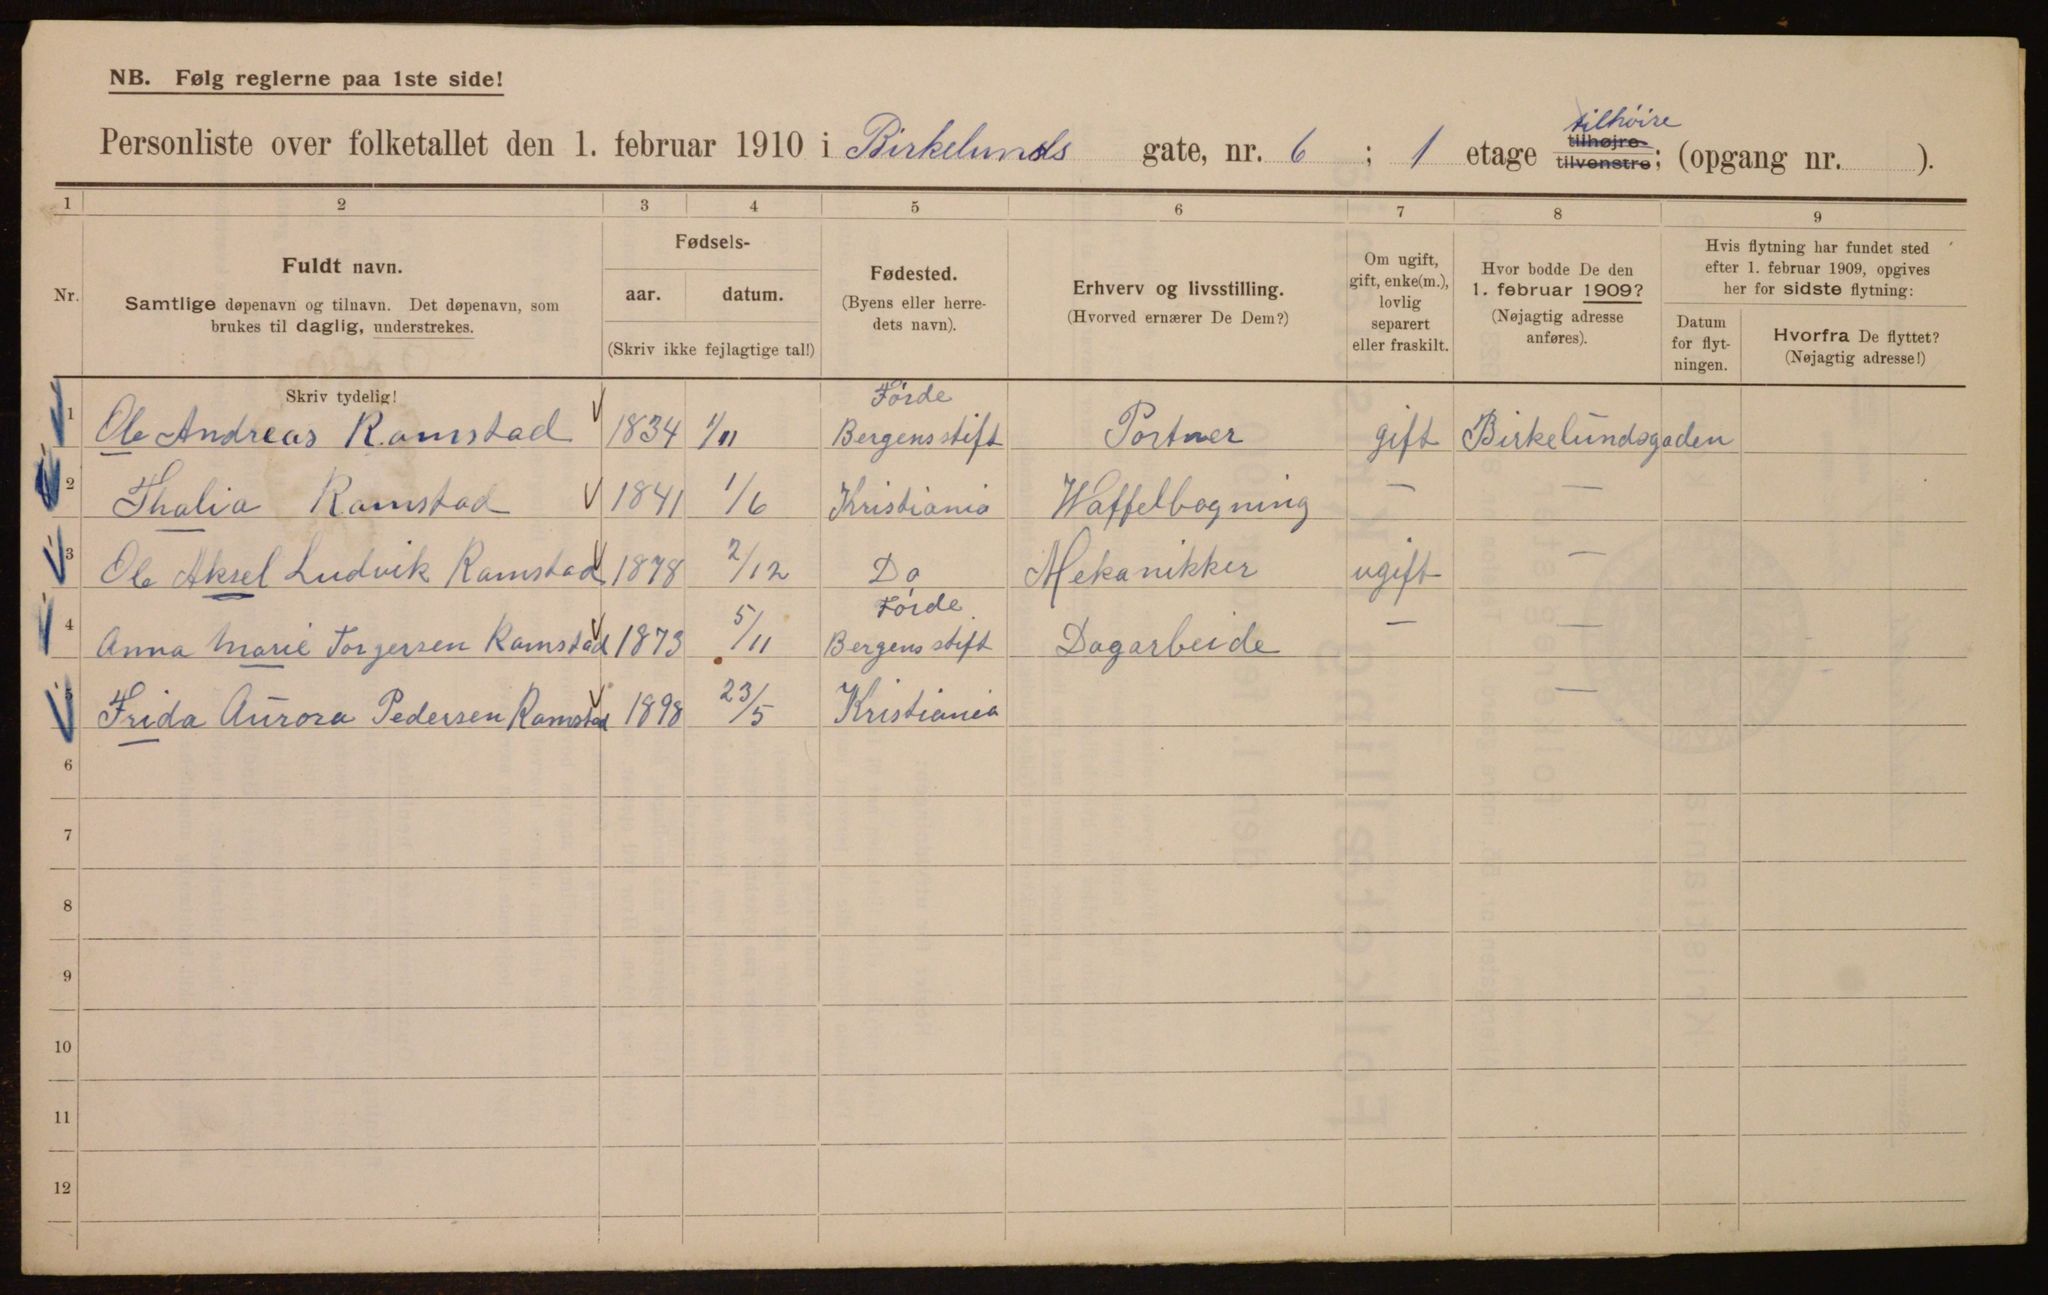 NB. Følg reglerne paa 1ste side!
tilhöire
Personliste over folketallet den 1. februar 1910 i Birkelunds gate, nr. 6 ; 1 etage tilhøjre tilvenstre; (opgang nr. ).
1 2 3 4 5 6 7 8 9
Nr.
Fuldt navn.
Samtlige døpenavn og tilnavn. Det døpenavn, som
brukes til daglig, understrekes.
Fødsels-
aar. datum.
(Skriv ikke fejlagtige tal!)
Fødested.
(Byens eller herre-
dets navn).
Erhverv og livsstilling.
(Hvorved ernærer De Dem?)
Om ugift,
gift, enke(m.),
lovlig
separert
eller fraskilt.
Hvor bodde De den
1. februar 1909?
(Nøjagtig adresse
anføres).
Hvis flytning har fundet sted
efter 1. februar 1909, opgives
her for sidste flytning:
Datum
for flyt-
ningen.
Hvorfra De flyttet?
(Nøjagtig adresse!)
Skriv tydelig!
Førde
1 Ole Andreas Ramstad 1834 1/11 Bergensstift Portner gift Birkelundsgaden
2 Thalia Ramstad 1841 1/6 Kristiania Waffelbagning — —
3 Ole Aksel Ludvik Ramstad 1878 2/12 Do Mekanikker ugift —
Førde
4 Anna Marie Torgersen Ramstad 1873 5/11 Bergensstift Dagarbeide — —
5 Frida Aurora Pedersen Ramstad 1898 23/5 Kristiania —
6
7
8
9
10
11
12